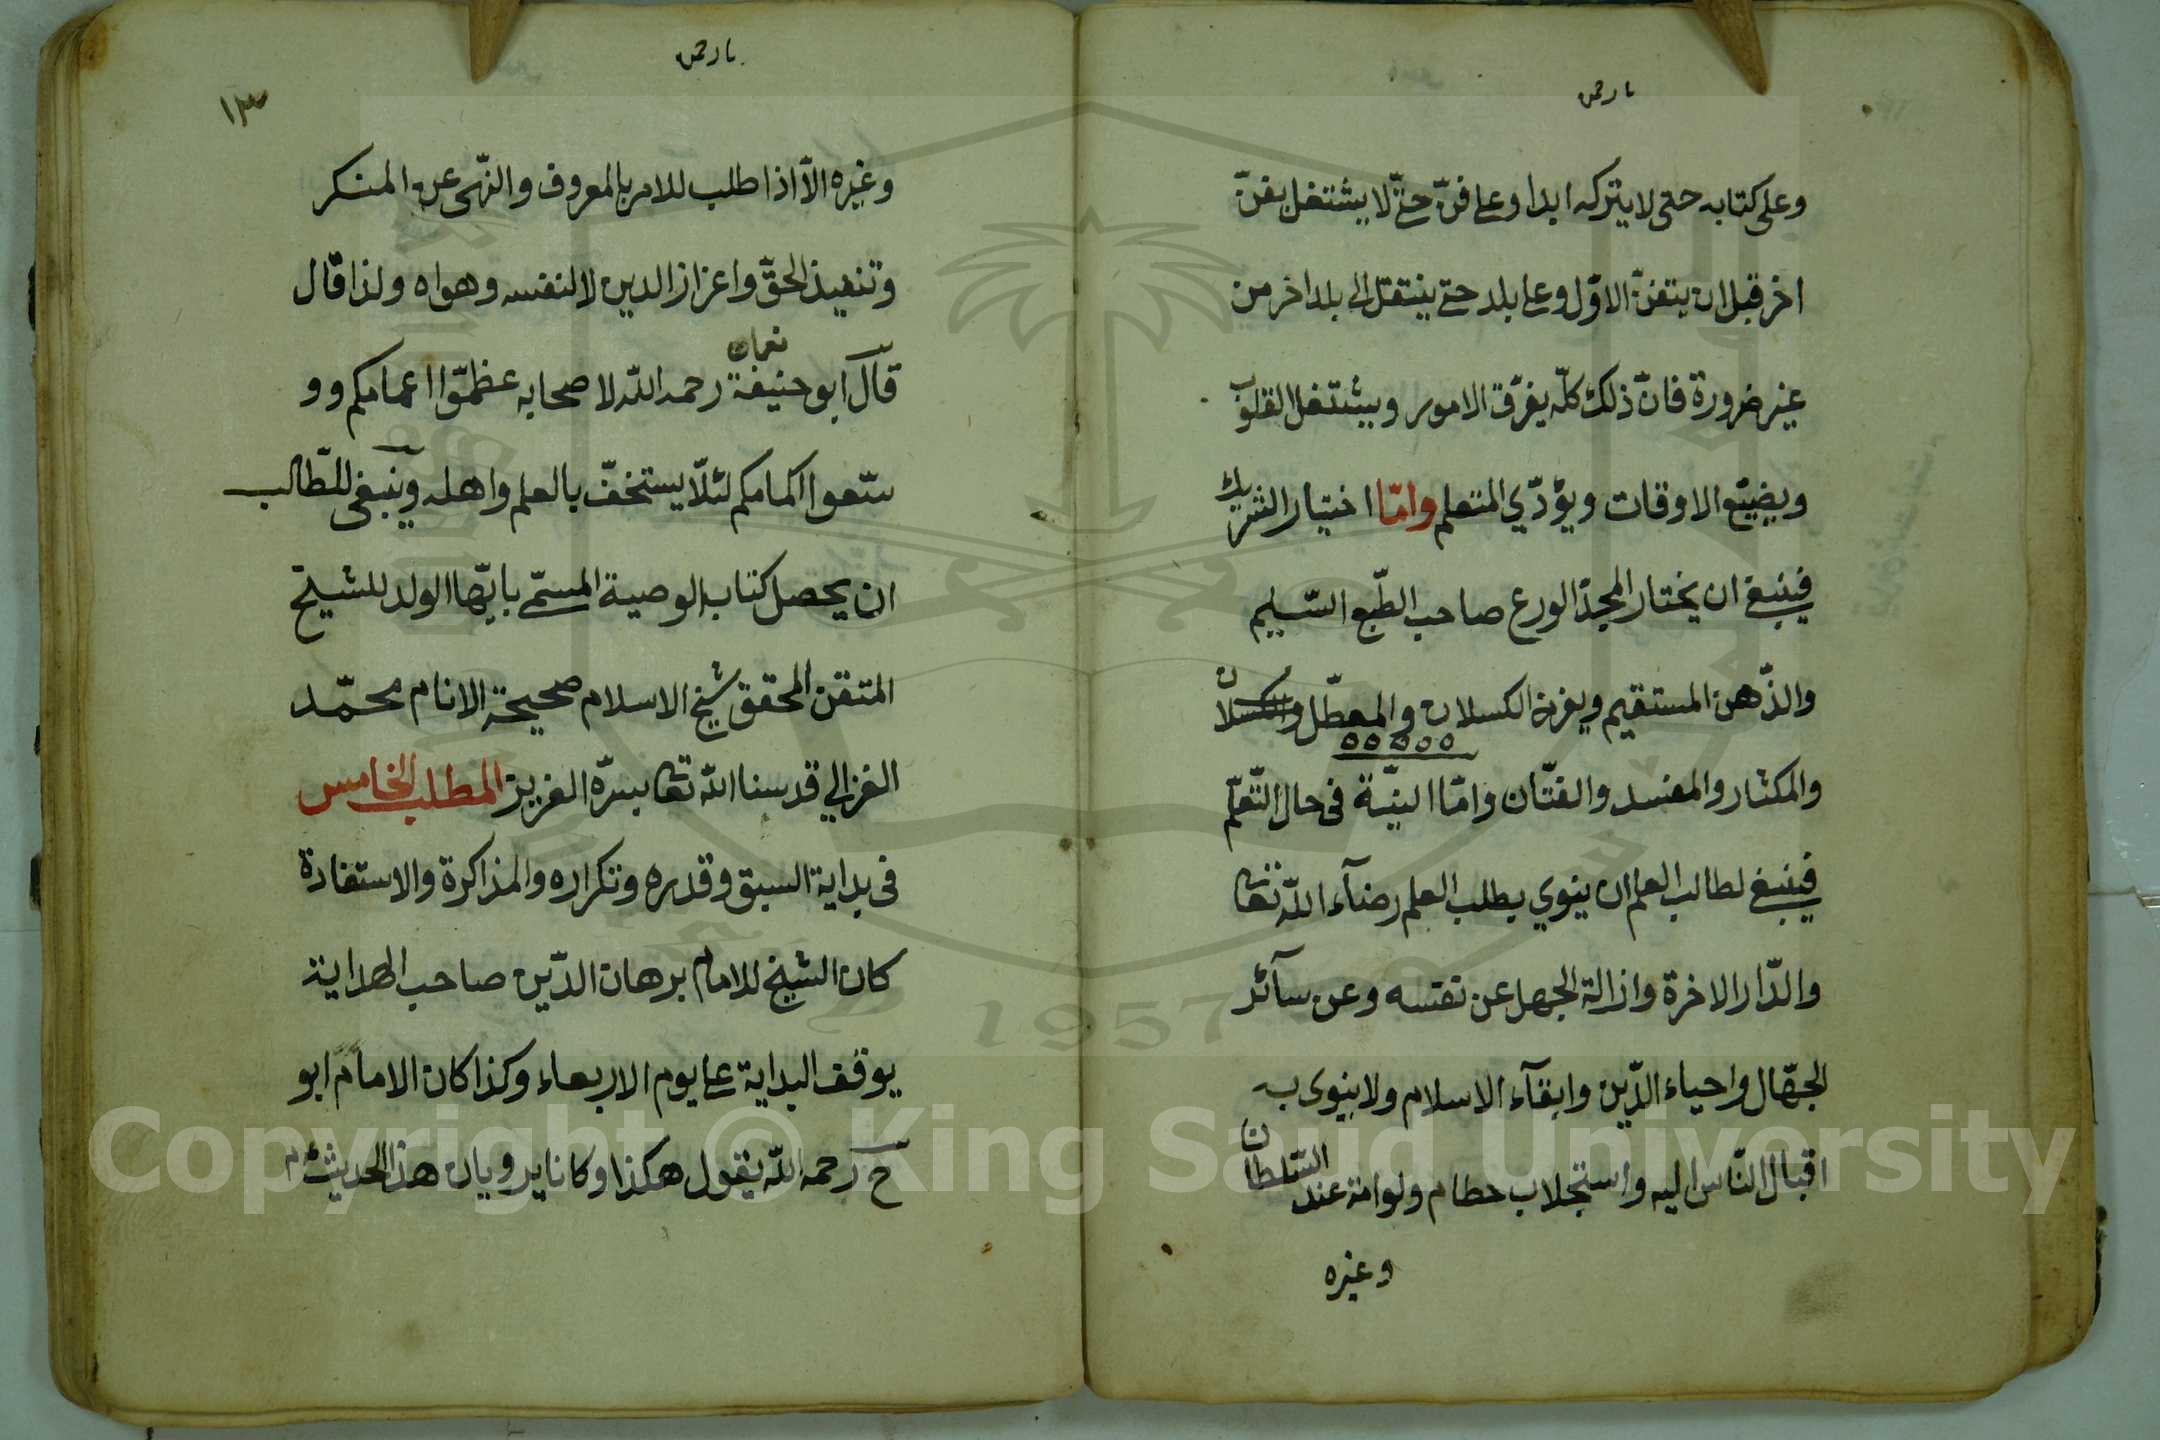 يا رحمن
وعلى كتابه حتى لا يتركه ابدا وعلى فنّ حتّى لا يشتغل بفنّ
اخر قبل ان يتقنّ الاوّل وعلى بلد حتى ينتقل الى بلد اخر من
غير ضرورة فانّ ذلك كلّه يفرّق الامور ويشتغل القلوب
ويضيّع الاوقات ويؤذي المتعلم وامّا اختيار الشريك
فينبغى ان يختار المجدّ الورع صاحب الطّبع السّليم
والذّهن المستقيم ويفر من الكسلان والمعطّل
والمكثار والمفسد والفتّان وامّا النيّة فى حال التّعلّم
فينبغى لطالب العلم ان ينوي بطلب العلم رضآء اللّه تعالى
والدّار الاخرة وازالة الجهل عن نفسه وعن سآئر
الجهّال واحياء الدّين وابقآء الاسلام ولا ينوى به
اقبال النّاس اليه واستجلاب حطام ولوامة عند السّلطان
وغيره
يا رحمن
١٣
وغيره الاّ اذا طلب للامر بالمعروف والنّهى عن المنكر
وتنفيذ الحقّ واعزاز الدين لا لنفسه وهواه ولذا قال
نعمان
قال ابو حنيفة رحمه اللّه لاصحابه عظمّوا اعمامكم وو
سّعوا اكمامكم لئلّا يستخفّ بالعلم واهله وينبغى للطّالب
ان يحصل كتاب الوصية المسمّى بايّها الولد للشيخ
المتقن المحقق شيخ الاسلام صحيحة الانام محمّد
الغزالي قدسنا اللّه تعالى بسرّه العزيز المطلب الخامس
فى بداية السبق وقدره وتكراره والمذاكرة والاستفادة
كان الشيخ للامام برهان الدّين صاحب الهداية
يوقف البداية على يوم الاربعاء وكذا كان الامام ابو
ح رحمه اللّه يقول هكذا وكانا يرويان هذا الحديث
Copyright © King Saud University
1957